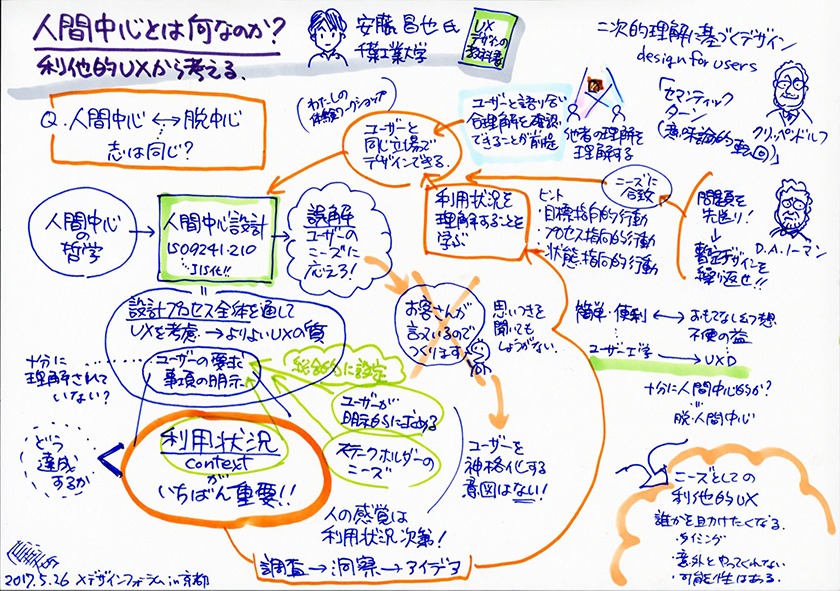 人間中心とは何なのか?
利他的UXから考える.
安藤 昌也 氏
千葉工業大学
UX
デザインの
教科書
二次的理解に基づくデザイン
design for users
「セマンティック
ターン」
(意味論的転回)
クリッペンドルフ
Q. 人間中心 ↔ 脱中心
志は同じ?
(わたしの
体験ワークショップ)
ユーザーと
同じ立場で
デザインできる.
ユーザーと語り合い
合理解を確認
できることが前提
他者の理解を
理解する
人間中心
の
哲学
人間中心設計
ISO9241-210
JIS化!!
誤解
ユーザーの
ニーズに
応えろ!
利用状況を
理解することを
学ぶ
ニーズに
合致
ヒント
・目標指向的行動
・プロセス指向的行動
・状態指向的行動
問題を
先送り!
暫定デザインを
繰り返せ!!
D.A.ノーマン
設計プロセス全体を通して
UXを考慮 → よりよいUXの質
ユーザーの要求
事項の明示
十分に
理解されて
いない?
総合的に設定
お客さんが
言っているので
つくります
思いつきを
聞いても
しょうがない.
簡単・便利 ↔ おもてなし幻想
不便の益
ユーザ工学 → UXD
十分に人間中心的か?
脱・人間中心
どう
達成
するか
利用状況
context
が
いちばん重要!!
ユーザーが
明示的に求める
ステークホルダーの
ニーズ
ユーザーを
神格化する
意図はない!
人の感覚は
利用状況次第!
ニーズとしての
利他的UX
誰かを助けたくなる.
・タイミング
・意外とやってくれない
・可能性はある.
調査 → 洞察 → アイデア
2017.5.26 Xデザインフォーラム in 京都